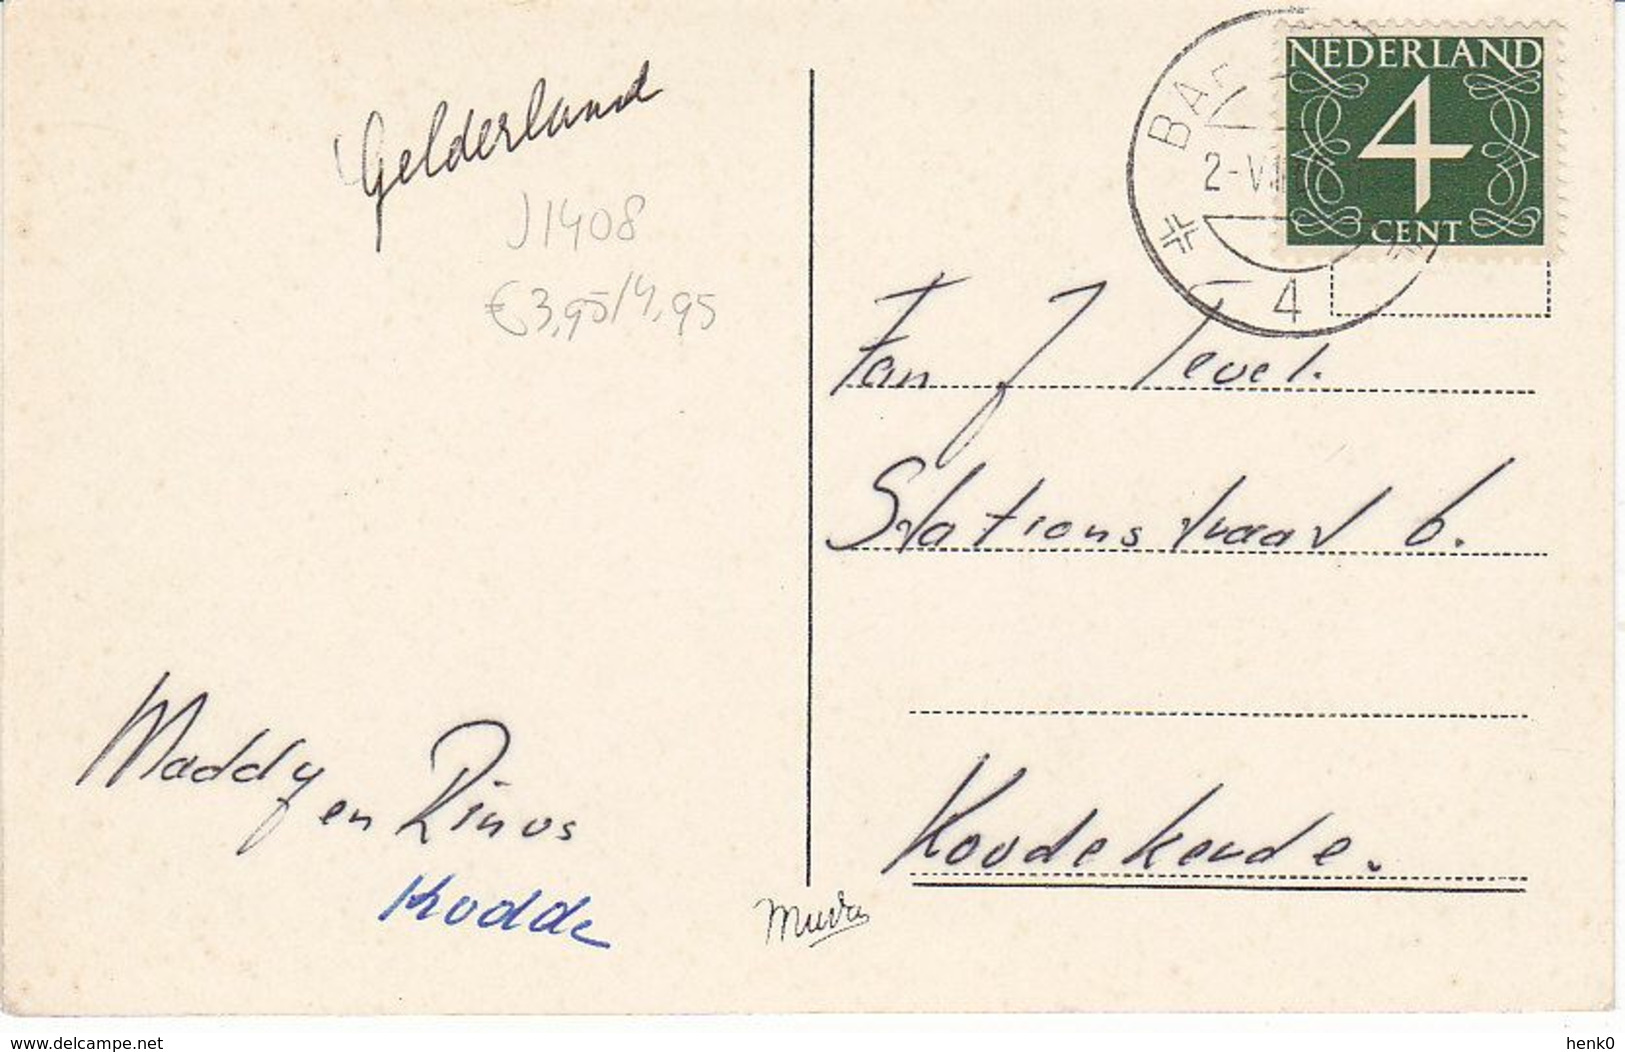 Gelderland
J1408
€3,95/4,95
NEDERLAND
4
CENT
2-VII
4
Fam J Tevel.
Stationstraat 6.
Koudekerde.
Maddy en Rinus
Kodde
www.delcampe.net
henk0